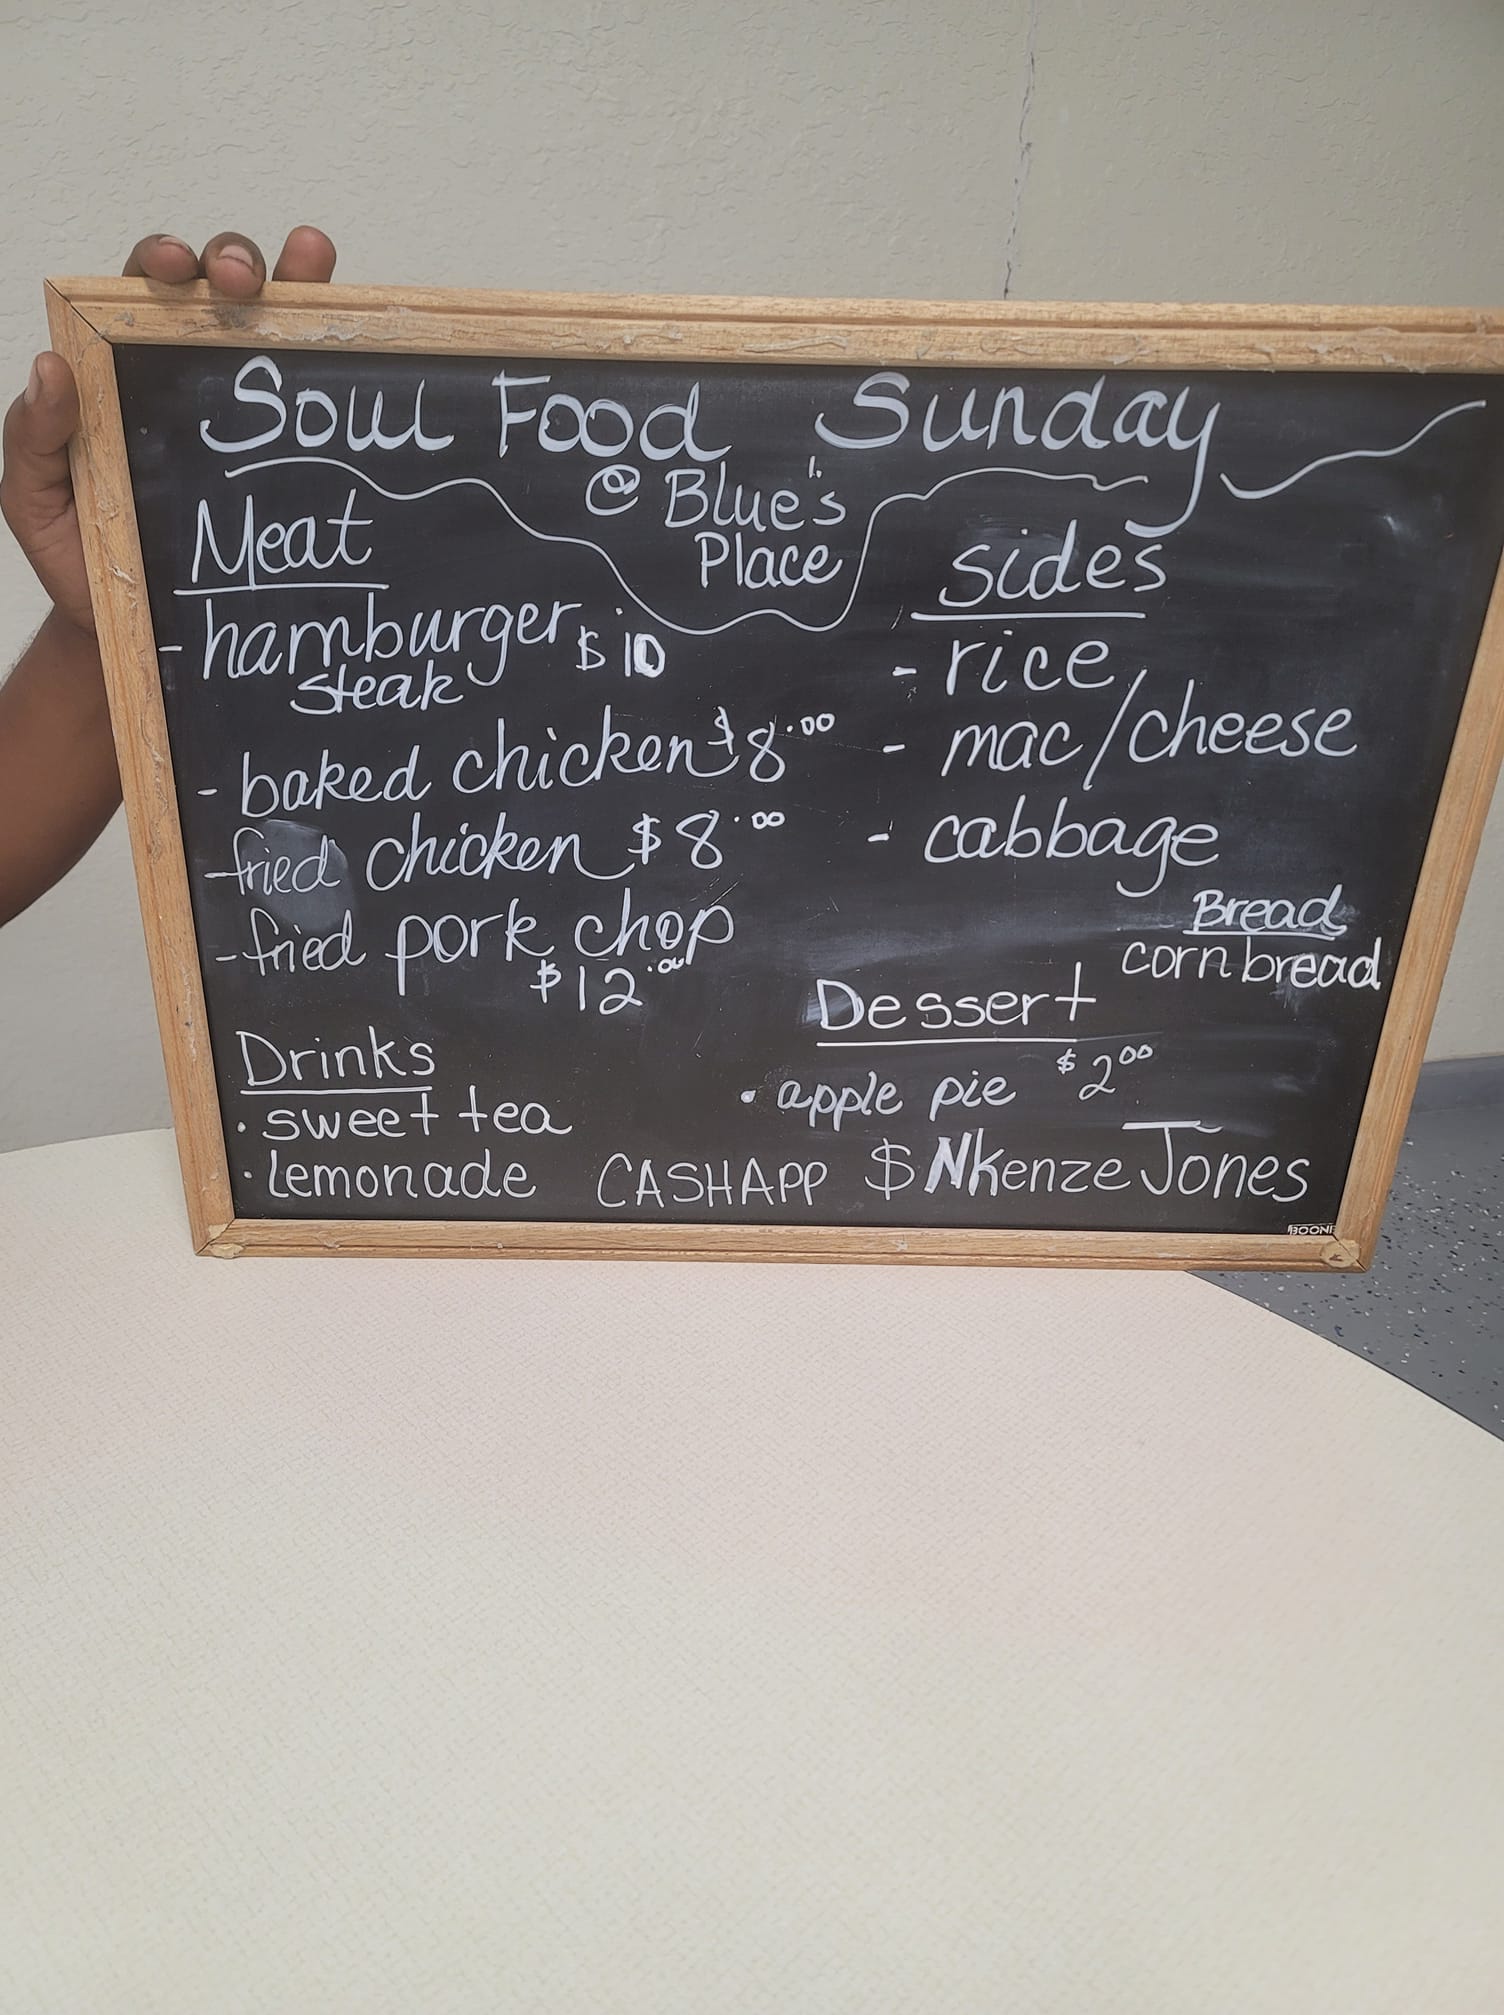 Soul Food Sunday
@ Blue's
Place
Meat
- hamburger $10
steak
- baked chicken $8.00
- fried chicken $8.00
- fried pork chop
$12.00
Drinks
• sweet tea
• lemonade
sides
- rice
- mac/cheese
- cabbage
Bread
corn bread
Dessert
• apple pie $2 00
CASHAPP $NkenzeJones
BOONE